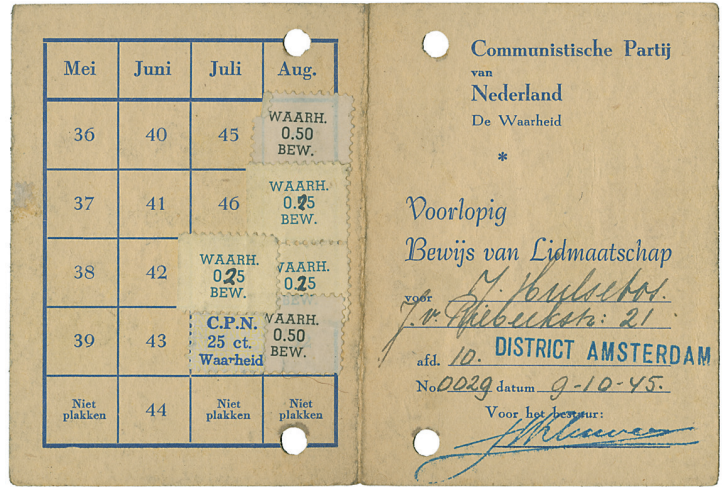 Mei Juni Juli Aug.
36 40 45 WAARH. 0.50 BEW.
37 41 46 WAARH. 0.25 BEW.
38 42 WAARH. 0.25 BEW. WAARH. 0.25
39 43 C.P.N. 25 ct. Waarheid WAARH. 0.50 BEW.
Niet plakken 44 Niet plakken Niet plakken
Communistische Partij
van
Nederland
De Waarheid
*
Voorlopig
Bewijs van Lidmaatschap
voor J. Hulsebos.
J. v. Riebeekstr: 21
afd. 10. DISTRICT AMSTERDAM
No 0029 datum 9-10-45.
Voor het bestuur: